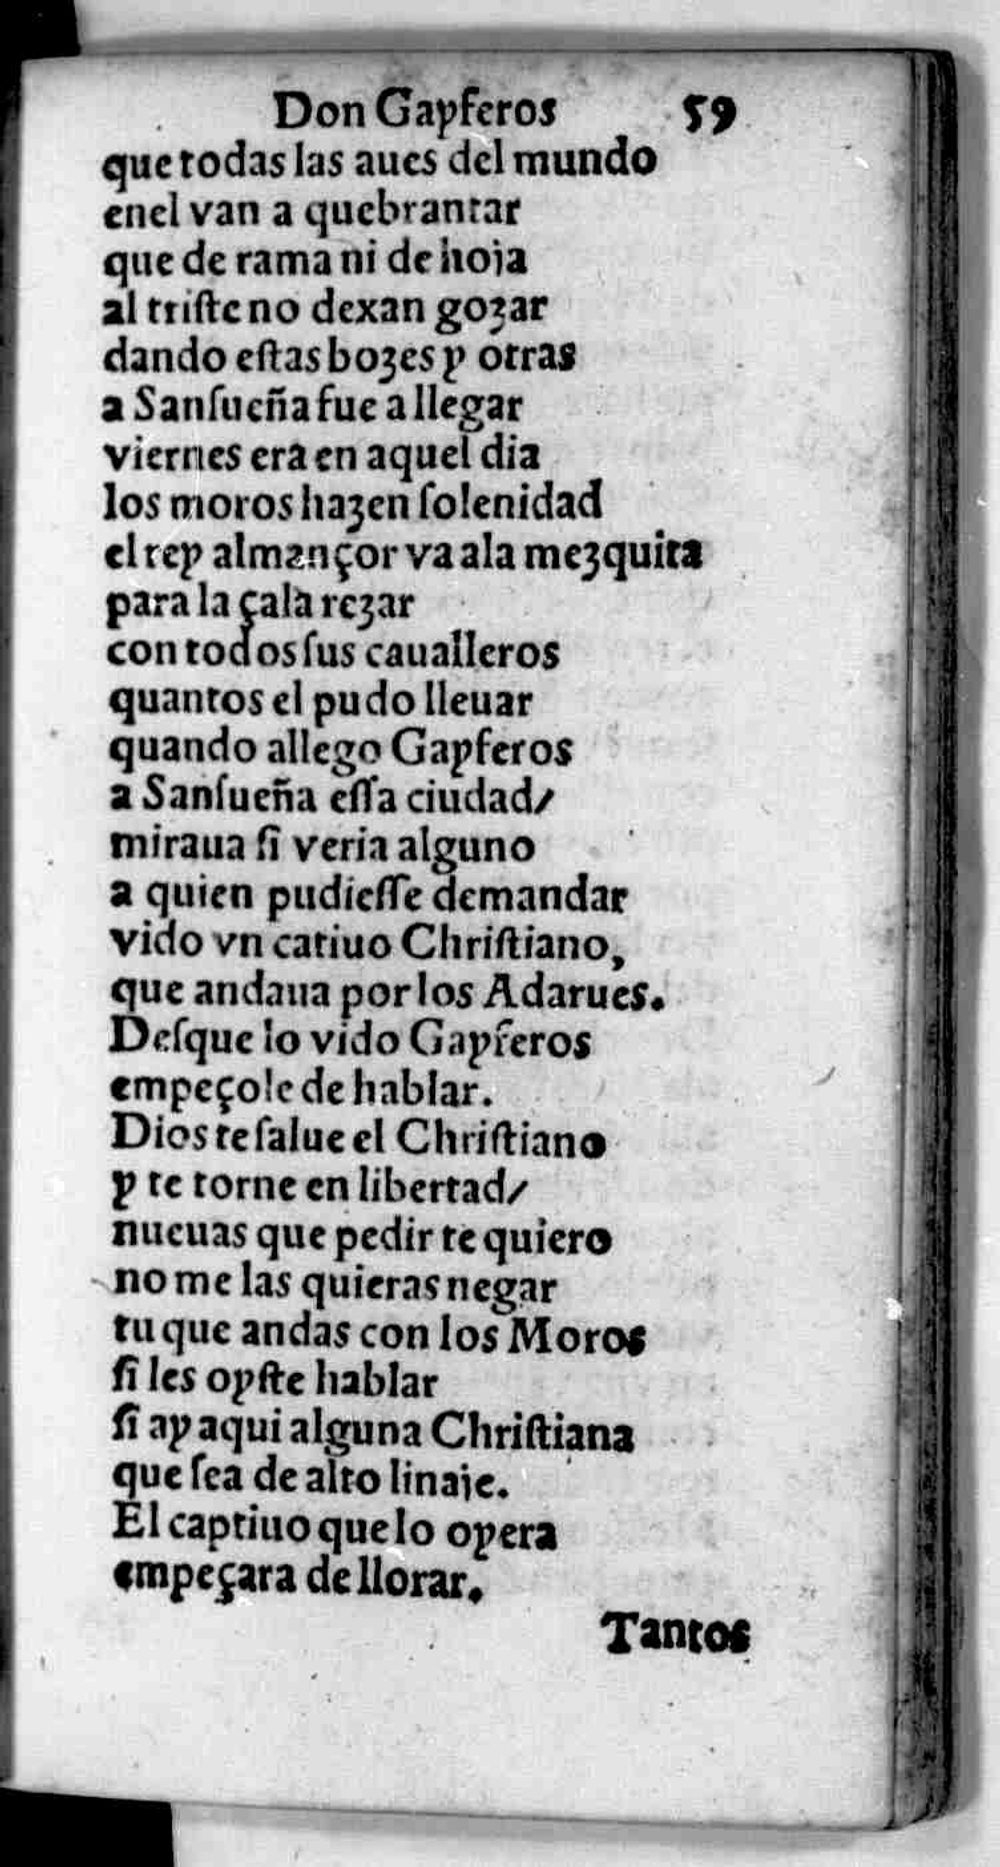 Don Gayferos 59
que todas las aues del mundo
enel van a quebrantar
que de rama ni de hoja
al triſte no dexan gozar
dando eſtas bozes y otras
a Sanſueña fue a llegar
viernes era en aquel dia
los moros hazen ſolenidad
el rey almançor va ala mezquita
para la çala rezar
con todos ſus caualleros
quantos el pudo lleuar
quando allego Gayferos
a Sanſueña eſſa ciudad/
miraua ſi veria alguno
a quien pudieſſe demandar
vido vn catiuo Chriſtiano,
que andaua por los Adarues.
Deſque lo vido Gayferos
empeçole de hablar.
Dios te ſalue el Chriſtiano
y te torne en libertad/
nueuas que pedir te quiero
no me las quieras negar
tu que andas con los Moros
ſi les oyſte hablar
ſi ay aqui alguna Chriſtiana
que ſea de alto linaje.
El captiuo que lo oyera
empeçara de llorar.
Tantos